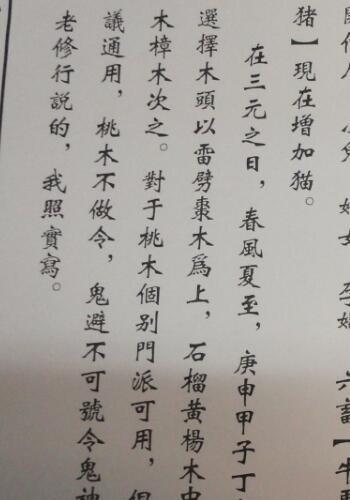 人 小兒 婦女 孕婦 六畜【牛
猪】現在增加猫。
在三元之日，春風夏至，庚申甲子丁
選擇木頭以雷劈棗木爲上，石榴黃楊木
木樟木次之。對于桃木個别門派可用，但
議通用，桃木不做令，鬼避不可號令鬼神
老修行說的，我照實寫。